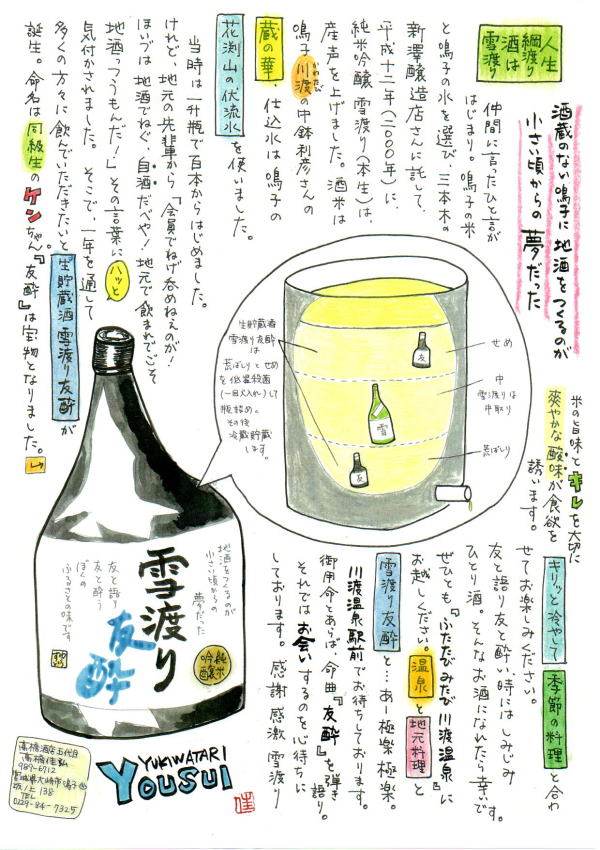 人生
綱渡り
酒は
雪渡り
酒蔵のない鳴子に地酒をつくるのが
小さい頃からの夢だった
仲間に言ったひと言が
はじまり。鳴子の米
と鳴子の水を選び、三本木の
新澤醸造店さんに託して、
平成十二年(二〇〇〇年)に、
純米吟醸 雪渡り(本生)は、
産声を上げました。酒米は
鳴子川渡の中鉢利彦さんの
かわたび
蔵の華、仕込水は鳴子の
花渕山の伏流水を使いました。
当時は一升瓶で百本からはじめました。
けれど、地元の先輩から「会員でねげ呑めねぇのが!
ほいづは地酒でねぐ、自酒だべや!地元で飲まれでこそ
地酒っつうもんだ!」その言葉にハッと
気付かされました。そこで、一年を通して
多くの方々に飲んでいただきたいと生貯蔵酒 雪渡り友酔が
誕生。命名は同級生のケンちゃん『友酔』は宝物となりました。
生貯蔵酒
雪渡り友酔
は
荒ばしりとせめ
を低温殺菌
(一回火入れ)して
瓶詰め。
その後
冷蔵貯蔵し
ます。
せめ
中
雪渡りは
中取り
荒ばしり
友
雪
友
米の旨味とキレを大切に
爽やかな酸味が食欲を
誘います。
キリッと冷やして季節の料理と合わ
せてお楽しみください。
友と語り友と酔い、時にはしみじみ
ひとり酒。そんなお酒になれたら幸いです。
ぜひとも『ふたたびみたび川渡温泉』に
お越しください。温泉と地元料理と
雪渡り友酔と…あー極楽極楽。
川渡温泉駅前でお待ちしております。
御用命とあらば、命曲『友酔』を弾き語り。
それではお会いするのを心待ちに
しております。感謝感激雪渡り
地酒をつくるのが
小さい頃からの
夢だった
雪渡り
友酔
友と語り
友と酔う
ぼくの
ふるさとの味です
純米
吟醸
YUKIWATARI
YOUSUI
髙橋酒店五代目
髙橋佳弘
989-6712
宮城県大崎市鳴子
坂ノ上138
TEL
0229-84-7325